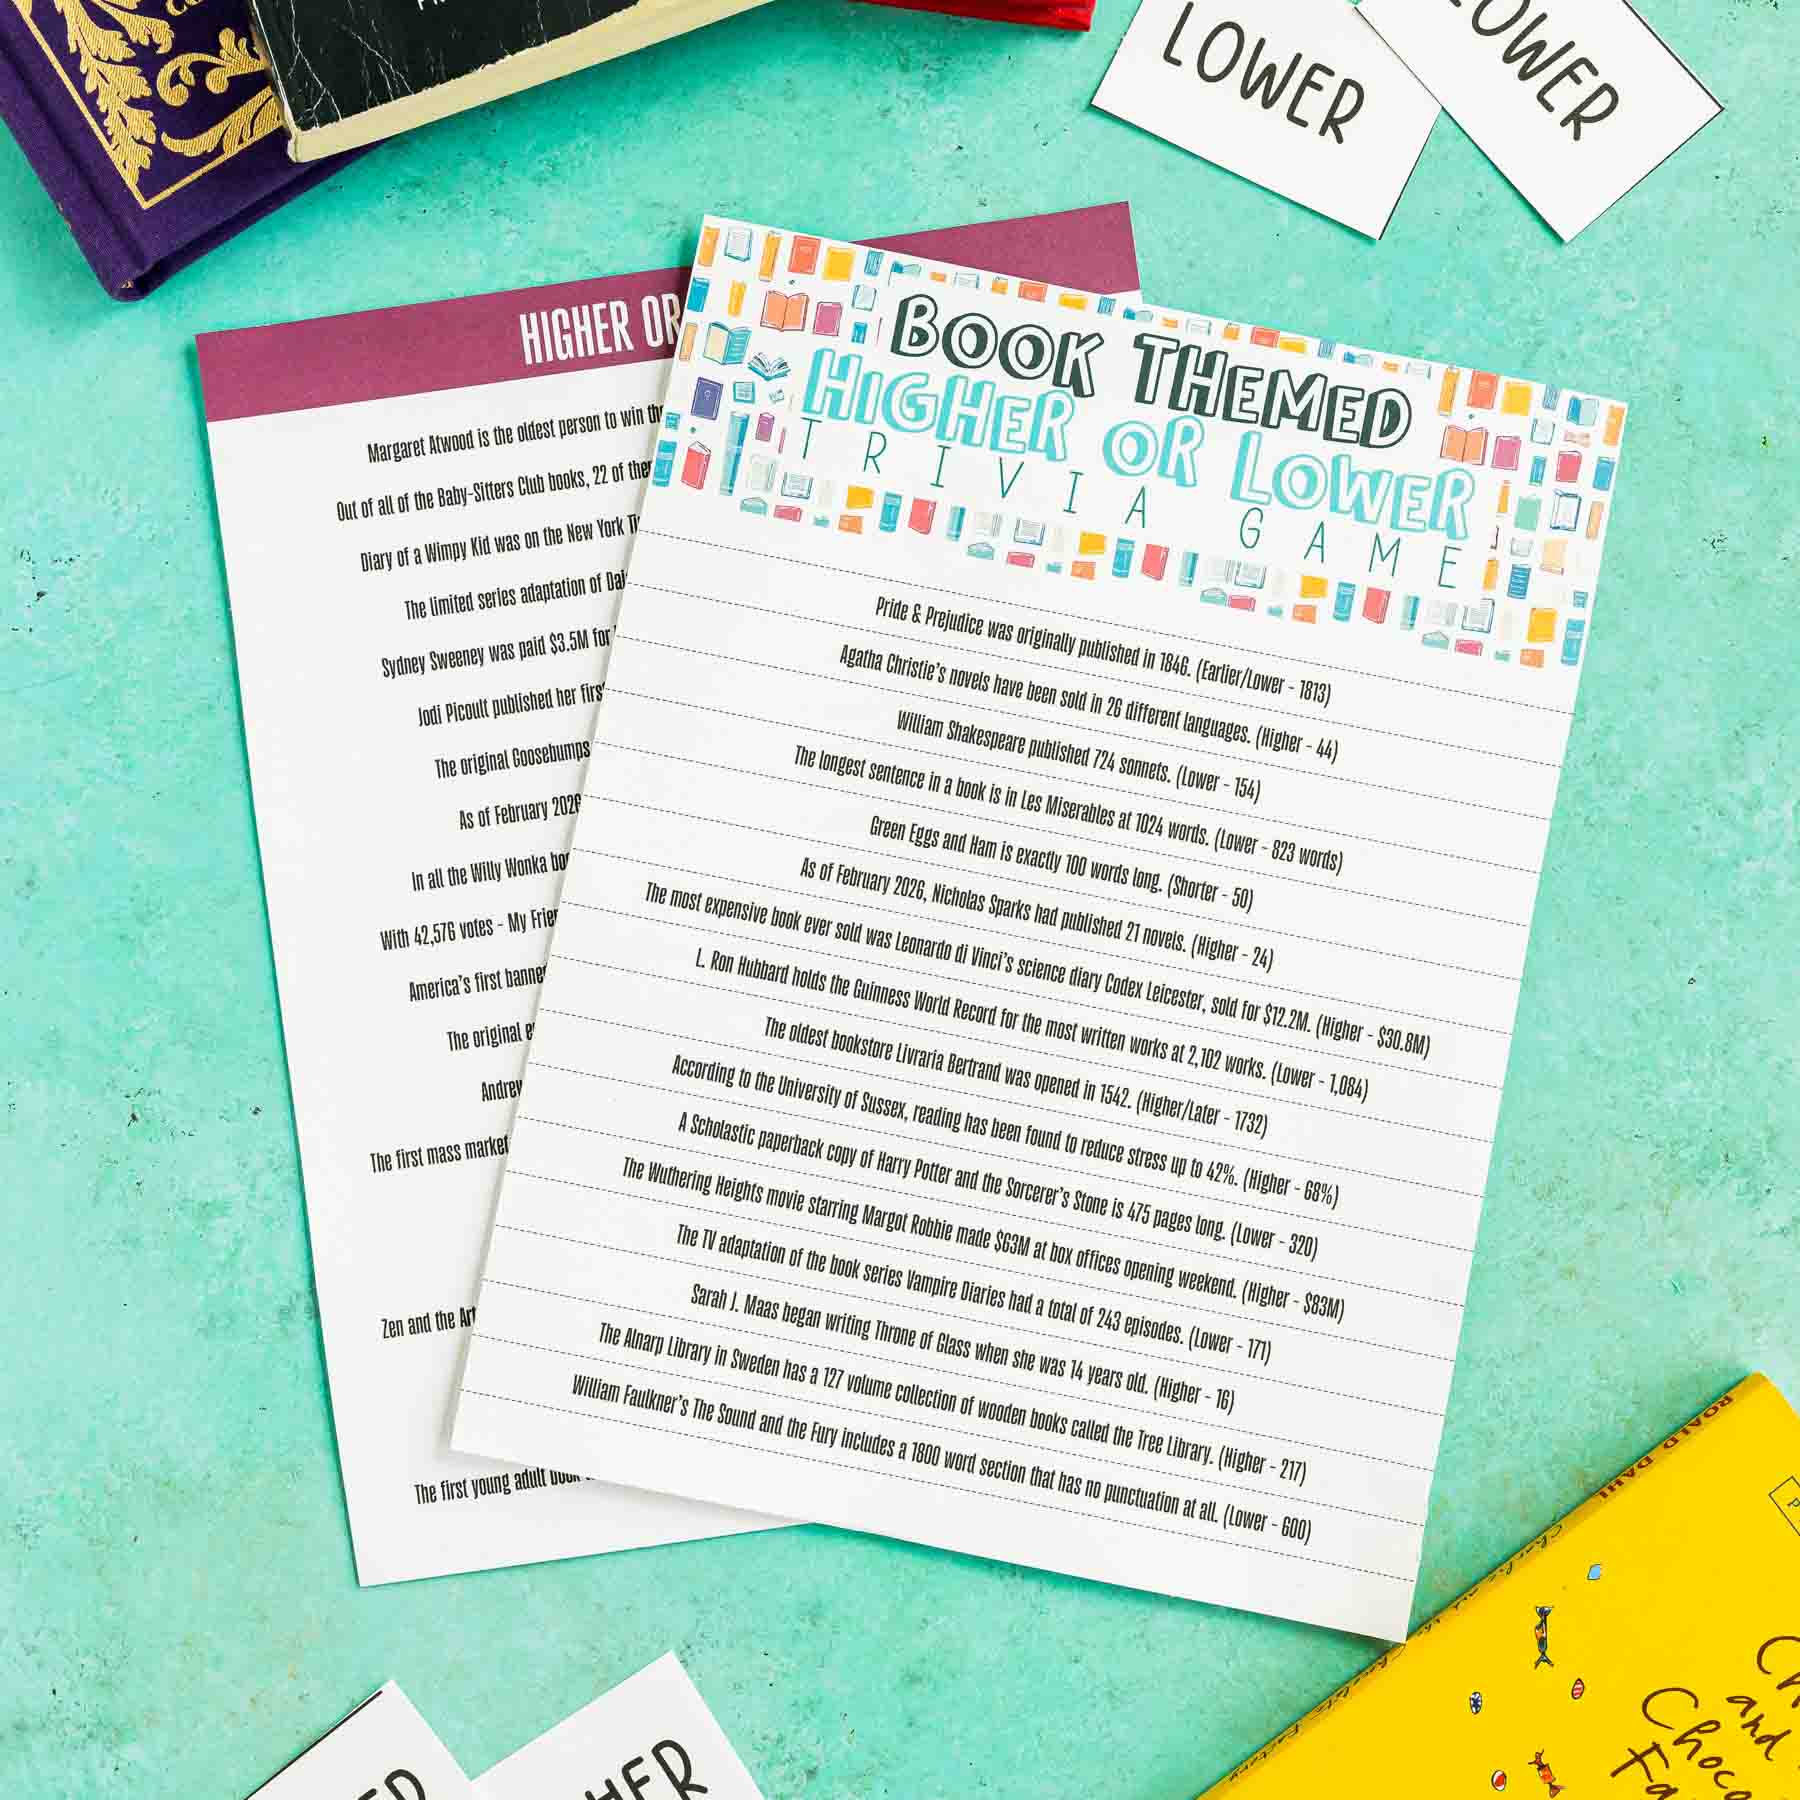 LOWER
LOWER
HIGHER OR
Margaret Atwood is the oldest person to win
Out of all of the Baby-Sitters Club books, 22 of
Diary of a Wimpy Kid was on the New York
The limited series adaptation of
Sydney Sweeney was paid $3.5M for
Jodi Picoult published her
The original Goosebumps
As of February 2026
In all the Willy Wonka
With 42,576 votes - My
America's first
The original
The first mass market
Zen and the
The first young adult book
BOOK THEMED
HIGHER OR LOWER
TRIVIA GAME
Pride & Prejudice was originally published in 1846. (Earlier/Lower - 1813)
Agatha Christie's novels have been sold in 26 different languages. (Higher - 44)
William Shakespeare published 724 sonnets. (Lower - 154)
The longest sentence in a book is in Les Miserables at 1024 words. (Lower - 823 words)
Green Eggs and Ham is exactly 100 words long. (Shorter - 50)
As of February 2026, Nicholas Sparks had published 21 novels. (Higher - 24)
The most expensive book ever sold was Leonardo di Vinci's science diary Codex Leicester, sold for $12.2M. (Higher - $30.8M)
L. Ron Hubbard holds the Guinness World Record for the most written works at 2,102 works. (Lower - 1,084)
The oldest bookstore Livraria Bertrand was opened in 1542. (Higher/Later - 1732)
According to the University of Sussex, reading has been found to reduce stress up to 42%. (Higher - 68%)
A Scholastic paperback copy of Harry Potter and the Sorcerer's Stone is 475 pages long. (Lower - 320)
The Wuthering Heights movie starring Margot Robbie made $63M at box offices opening weekend. (Higher - $83M)
The TV adaptation of the book series Vampire Diaries had a total of 243 episodes. (Lower - 171)
Sarah J. Maas began writing Throne of Glass when she was 14 years old. (Higher - 16)
The Alnarp Library in Sweden has a 127 volume collection of wooden books called the Tree Library. (Higher - 217)
William Faulkner's The Sound and the Fury includes a 1800 word section that has no punctuation at all. (Lower - 600)
ROALD DAHL
and